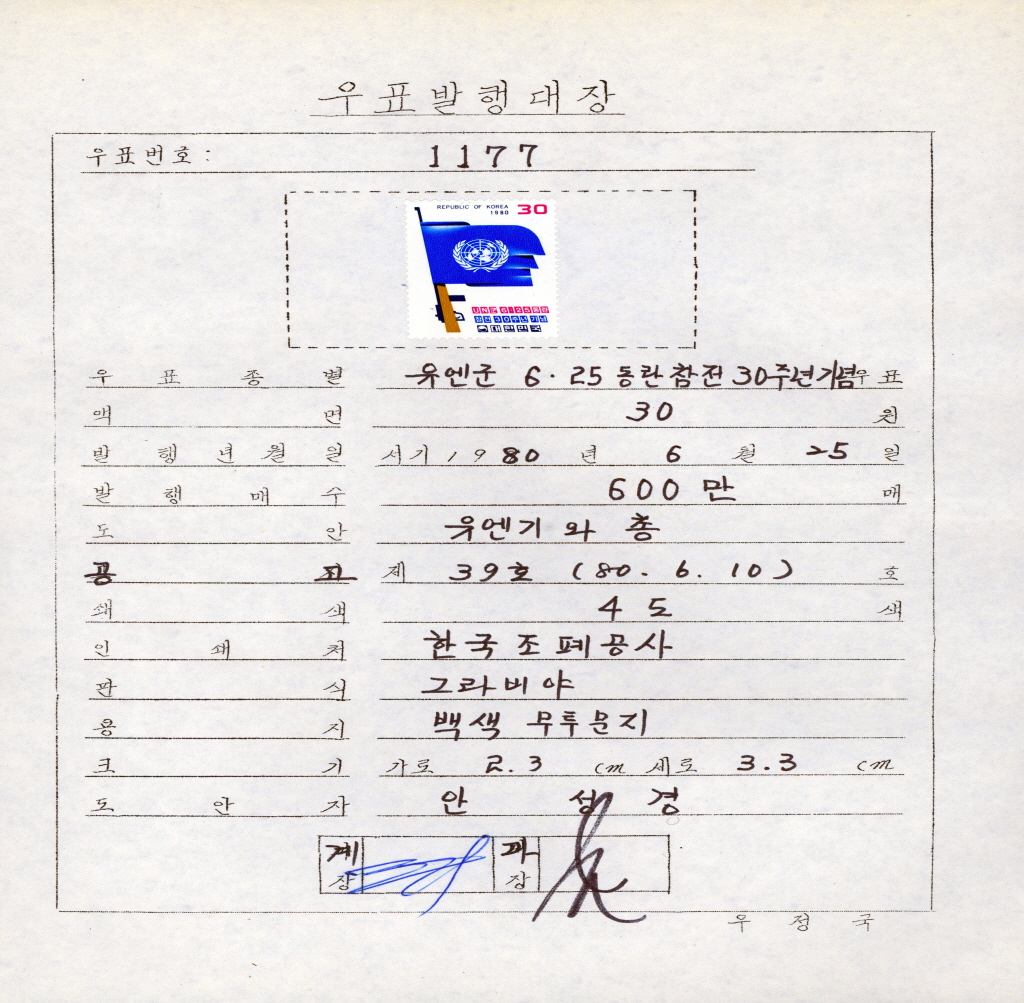 우표발행대장
우표번호: 1177
REPUBLIC OF KOREA 30
1980
UN군 6·25동란
참전30주년기념
대한민국
우표종별 유엔군 6·25동란참전30주년기념우표
액면 30 원
발행년월일 서기1980년 6월 25일
발행매수 600만 매
도안 유엔기와 총
공표 제 39호 (80. 6. 10) 호
쇄색 4도 색
인쇄처 한국조폐공사
판식 그라비야
용지 백색 무투문지
크기 가로 2.3 cm 세로 3.3 cm
도안자 안성경
계장 과장
우정국